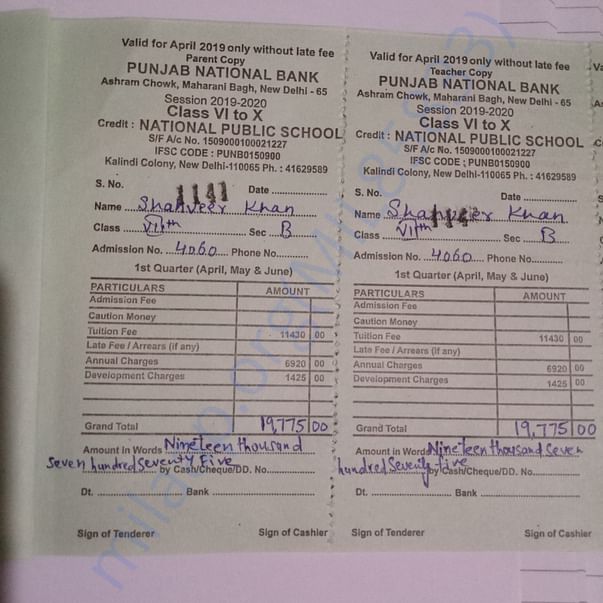 Valid for April 2019 only without late fee
Parent Copy
PUNJAB NATIONAL BANK
Ashram Chowk, Maharani Bagh, New Delhi - 65
Session 2019-2020
Class VI to X
Credit : NATIONAL PUBLIC SCHOOL
S/F A/c No. 1509000100021227
IFSC CODE ; PUNB0150900
Kalindi Colony, New Delhi-110065 Ph. : 41629589
S. No. 1141 Date
Name Shahveer Khan
Class VIIth Sec B
Admission No. 4060 Phone No.
1st Quarter (April, May & June)
PARTICULARS AMOUNT
Admission Fee
Caution Money
Tuition Fee 11430 00
Late Fee / Arrears (if any)
Annual Charges 6920 00
Development Charges 1425 00
Grand Total 19,775 00
Amount in Words Nineteen thousand
Seven hundred Seventy Five by Cash/Cheque/DD. No.
Dt. Bank
Sign of Tenderer Sign of Cashier
Valid for April 2019 only without late fee
Teacher Copy
PUNJAB NATIONAL BANK
Ashram Chowk, Maharani Bagh, New Delhi - 65
Session 2019-2020
Class VI to X
Credit : NATIONAL PUBLIC SCHOOL
S/F A/c No. 1509000100021227
IFSC CODE ; PUNB0150900
Kalindi Colony, New Delhi-110065 Ph. : 41629589
S. No. Date
Name Shahveer Khan
Class VIIth Sec B
Admission No. 4060 Phone No.
1st Quarter (April, May & June)
PARTICULARS AMOUNT
Admission Fee
Caution Money
Tuition Fee 11430 00
Late Fee / Arrears (if any)
Annual Charges 6920 00
Development Charges 1425 00
Grand Total 19,775 00
Amount in Words Nineteen thousand Seven
hundred Seventy five by Cash/Cheque/DD. No.
Dt. Bank
Sign of Tenderer Sign of Cashier